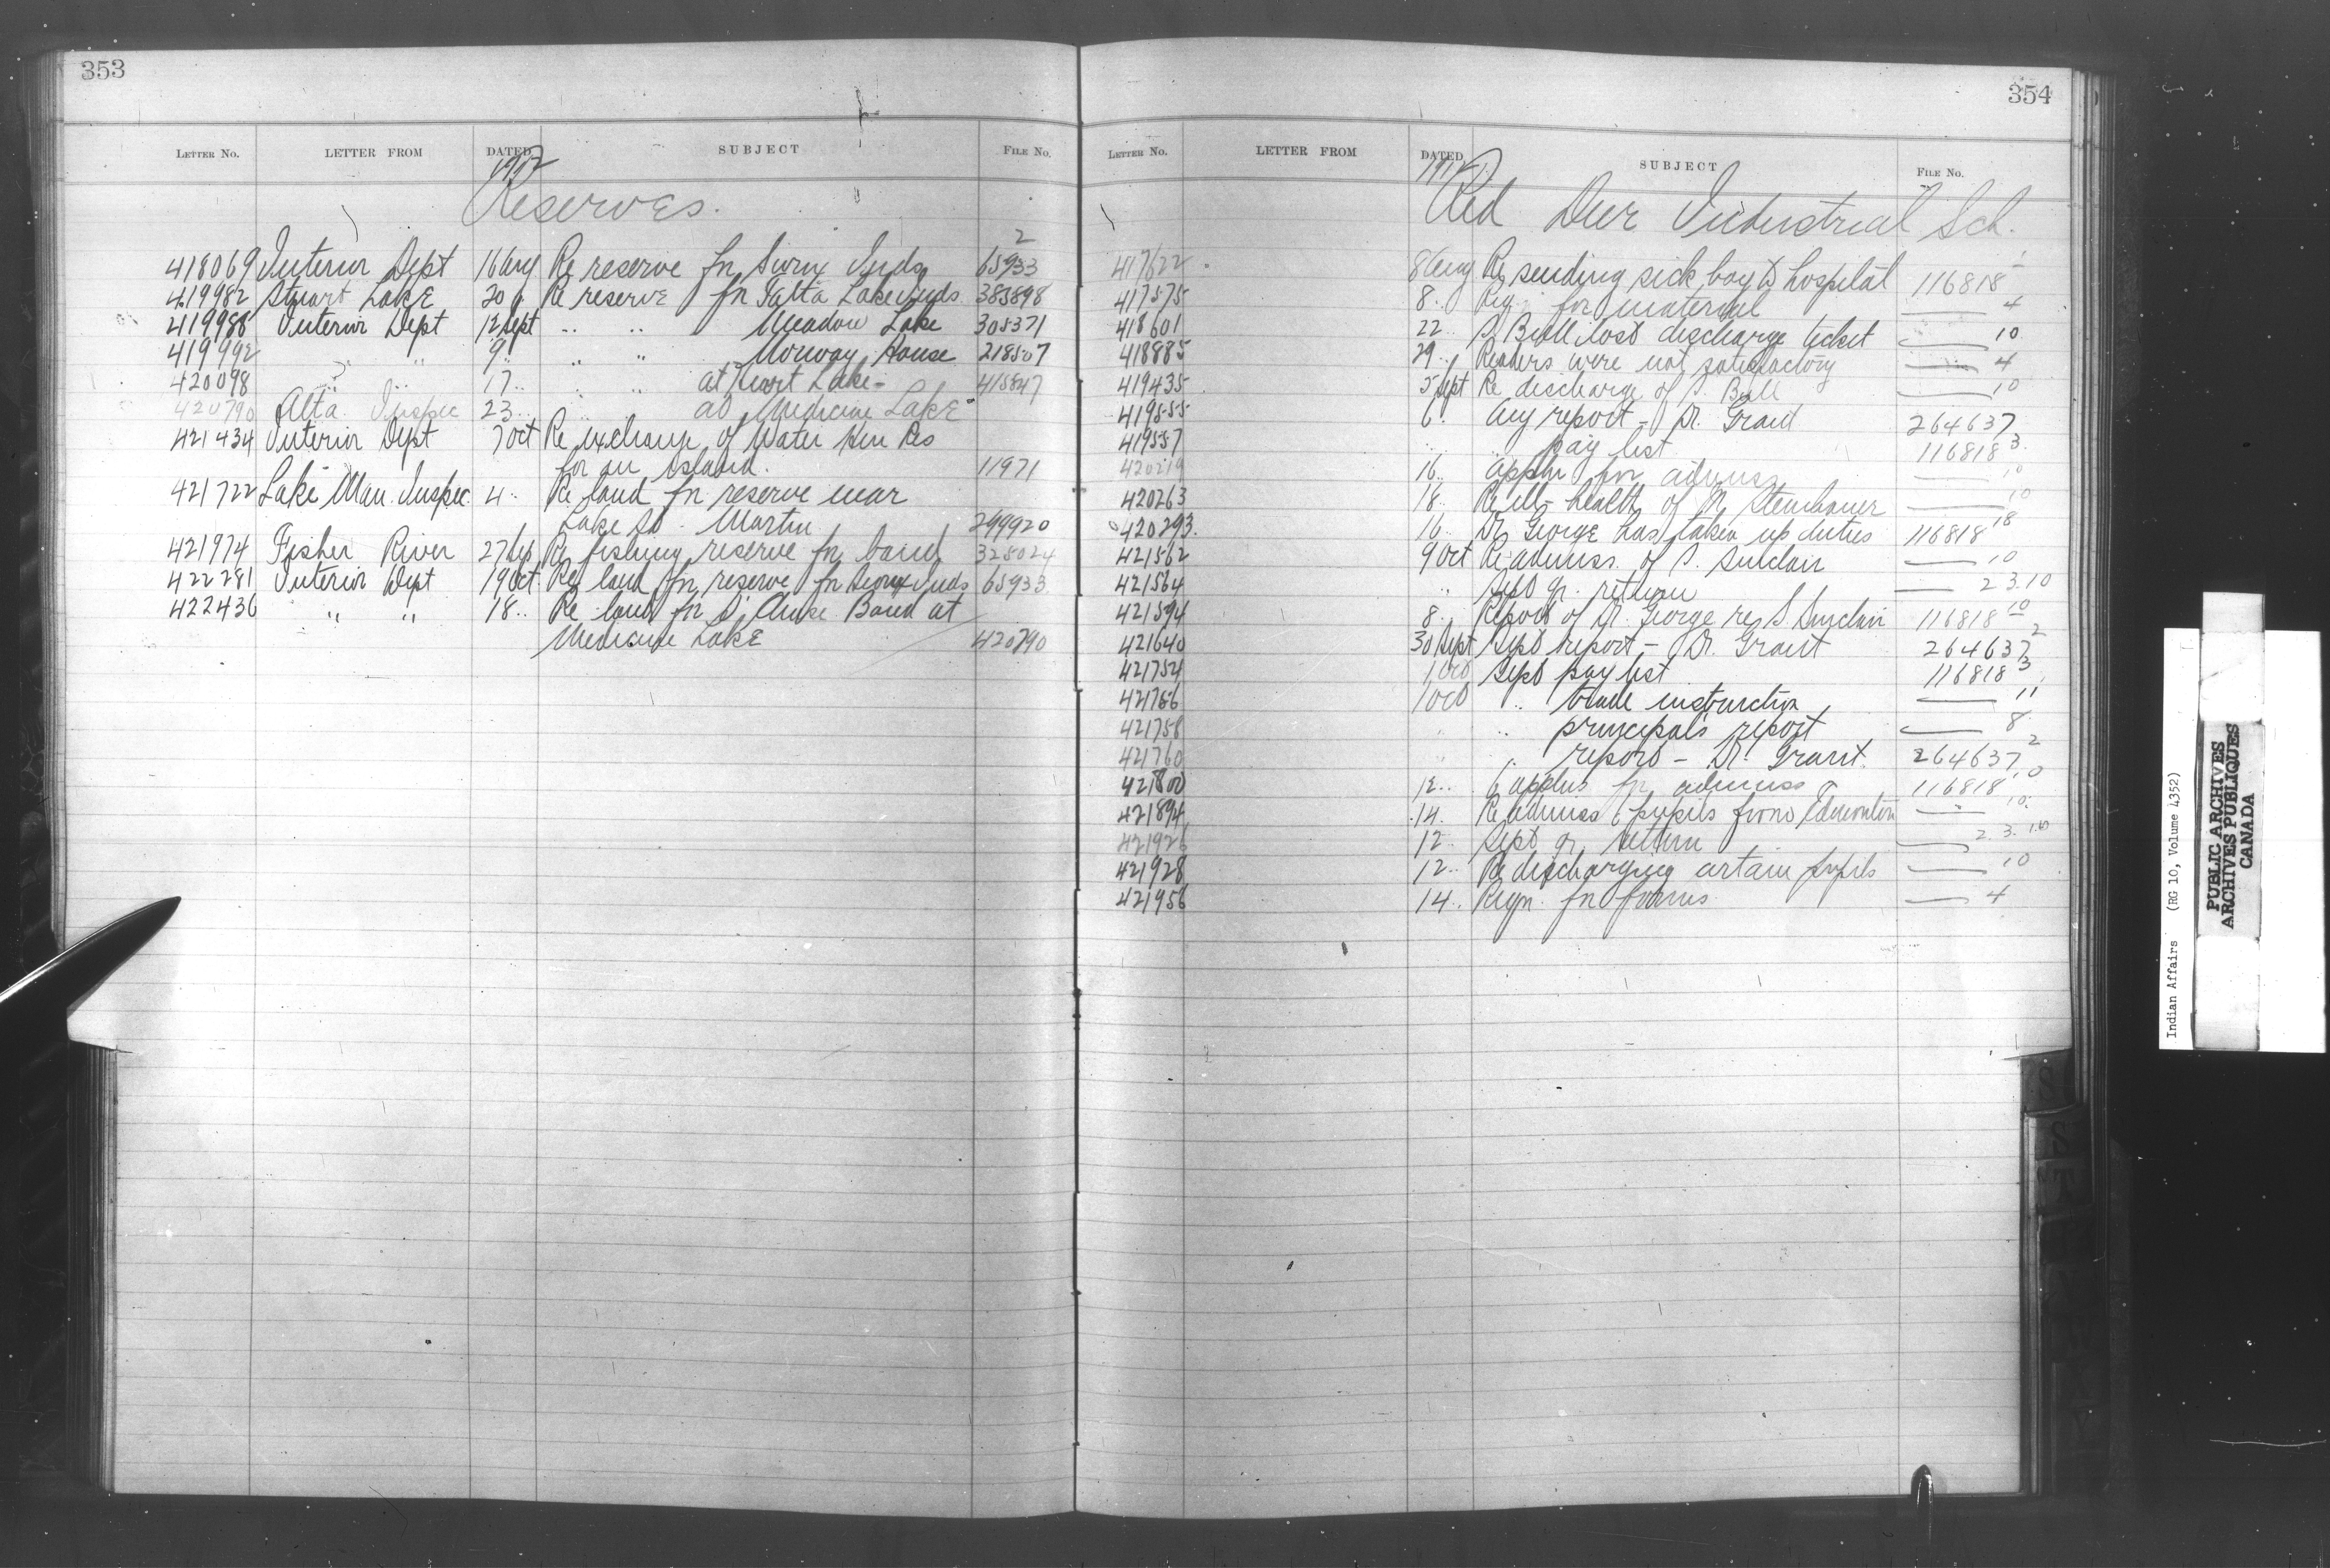 353
LETTER NO. LETTER FROM DATED SUBJECT FILE NO.
1912
Reserves.
418069 Interior Dept 16 Aug Re reserve fr Sioux Inds 65933 2
419982 Stuart Lake 20 " Re reserve fr Lake Inds 385898
419988 Interior Dept 12 Sept " " Meadow Lake 305371
419992 " " 9 " " " Norway House 218507
420098 " " 17 " " " at Lake - 415847
420790 Alta Inspec 23 " at Medicine Lake
421434 Interior Dept 7 Oct Re exchange of Water Hen Res
for an island. 11971
421722 Lake Man. Inspec. 4 " Re land fr reserve near
Lake St. Martin 299920
421974 Fisher River 27 Sep Re fishing reserve fr band 328024
422281 Interior Dept 19 Oct Re land fr reserve fr Sioux Inds 65933
422436 " " 18 " Re land fr Band at
Medicine Lake 420790
354
LETTER NO. LETTER FROM DATED SUBJECT FILE NO.
1912
Red Deer Industrial Sch.
417622 8 Aug Re sending sick boy to hospital 116818 1
417575 8 " Req. for material — 4
418601 22 " S. Bull lost discharge ticket — 10
418885 29 " Readers were not satisfactory — 4
419435 5 Sept Re discharge of S. Bull — 10
419555 6 " Aug report - Dr. Grant 264637
419557 " " pay list 116818 3
420219 16 " Appln for admiss — 10
420263 18 " Re ill-health of M. Steinhauer — 10
420293 16 " Dr George has taken up duties 116818 18
421562 9 Oct Re admiss. of S. Sinclair — 10
421564 " Sept qr. return — 2 3.10
421594 8 " Report of Dr. George re S. Sinclair 116818 10
421640 30 Sept Sept report - Dr. Grant 264637 2
421754 1 Oct Sept pay list 116818 3
421756 1 Oct " trade instruction — 11
421758 " " principal's report — 8
421760 " " report - Dr. Grant. 264637 2
421800 12 " 6 applns fr admiss 116818 10
421894 14 " Re admiss 6 pupils from Edmonton — 10
421926 12 " Sept qr return — 2. 3. 10
421928 12 " Re discharging certain pupils — 10
421956 14 " Reqn. fr forms — 4
S
S
T
Indian Affairs (RG 10, Volume 4352)
PUBLIC ARCHIVES
ARCHIVES PUBLIQUES
CANADA